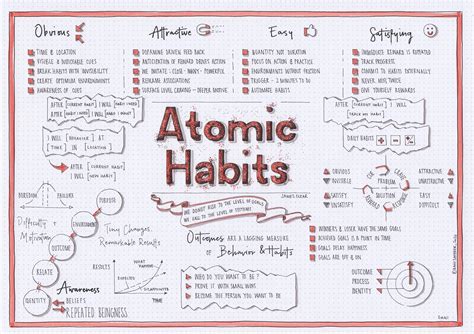 Obvious
Attractive
Easy
Satisfying
TIME & LOCATION
VISIBLE & NOTICABLE CUES
BREAK HABITS WITH INVISIBILITY
CREATE OPTIMUM ENVIRONMENTS
AWARENESS OF CUES
DOPAMINE DRIVEN FEED BACK
ANTICIPATION OF REWARD DRIVES ACTION
WE IMITATE : CLOSE · MANY · POWERFUL
REFRAME ASSOCIATIONS
SURFACE LEVEL CRAVING - DEEPER MOTIVE
QUANTITY NOT DURATION
FOCUS ON ACTION & PRACTICE
ENVIRONMENTS WITHOUT FRICTION
TRIGGER - 2 MINUTES TO DO
AUTOMATE HABITS
IMMEDIATE REWARD IS REPEATED
TRACK PROGRESS
COMMIT TO HABITS EXTERNALLY
NEVER MISS TWICE
GIVE YOURSELF REWARDS
AFTER [CURRENT HABIT] I WILL [HABIT I NEED]
AFTER [HABIT I NEED] I WILL [HABIT I WANT]
I WILL [BEHAVIOR] AT
[TIME] IN [LOCATION]
AFTER [CURRENT HABIT]
I WILL [NEW HABIT]
Atomic
Habits
JAMES CLEAR
WE DO NOT RISE TO THE LEVEL OF GOALS
WE FALL TO THE LEVEL OF SYSTEMS
AFTER [CURRENT HABIT]
I WILL [NEW HABIT]
DAILY HABITS
OBVIOUS
INVISIBLE
SATISFYING
UNSATISFYING
CUE
CRAVE
PROBLEM
SOLUTION
RESPONSE
REWARD
ATTRACTIVE
UNATTRACTIVE
EASY
DIFFICULT
BOREDOM
FAILURE
Difficulty
&
Motivation
PURPOSE
ENVIRONMENT
OUTCOME
RELATE
IDENTITY
Tiny Changes,
Remarkable Results
Awareness
BELIEFS
REPEATED BEINGNESS
Outcomes ARE A LAGGING MEASURE
OF Behavior & Habits
WHO DO YOU WANT TO BE ?
PROVE IT WITH SMALL WINS
BECOME THE PERSON YOU WANT TO BE
WINNERS & LOSERS HAVE THE SAME GOALS
ACHIEVED GOALS IS A POINT IN TIME
GOALS DELAY HAPPINESS
GOALS ALL END
OUTCOME
PROCESS
IDENTITY